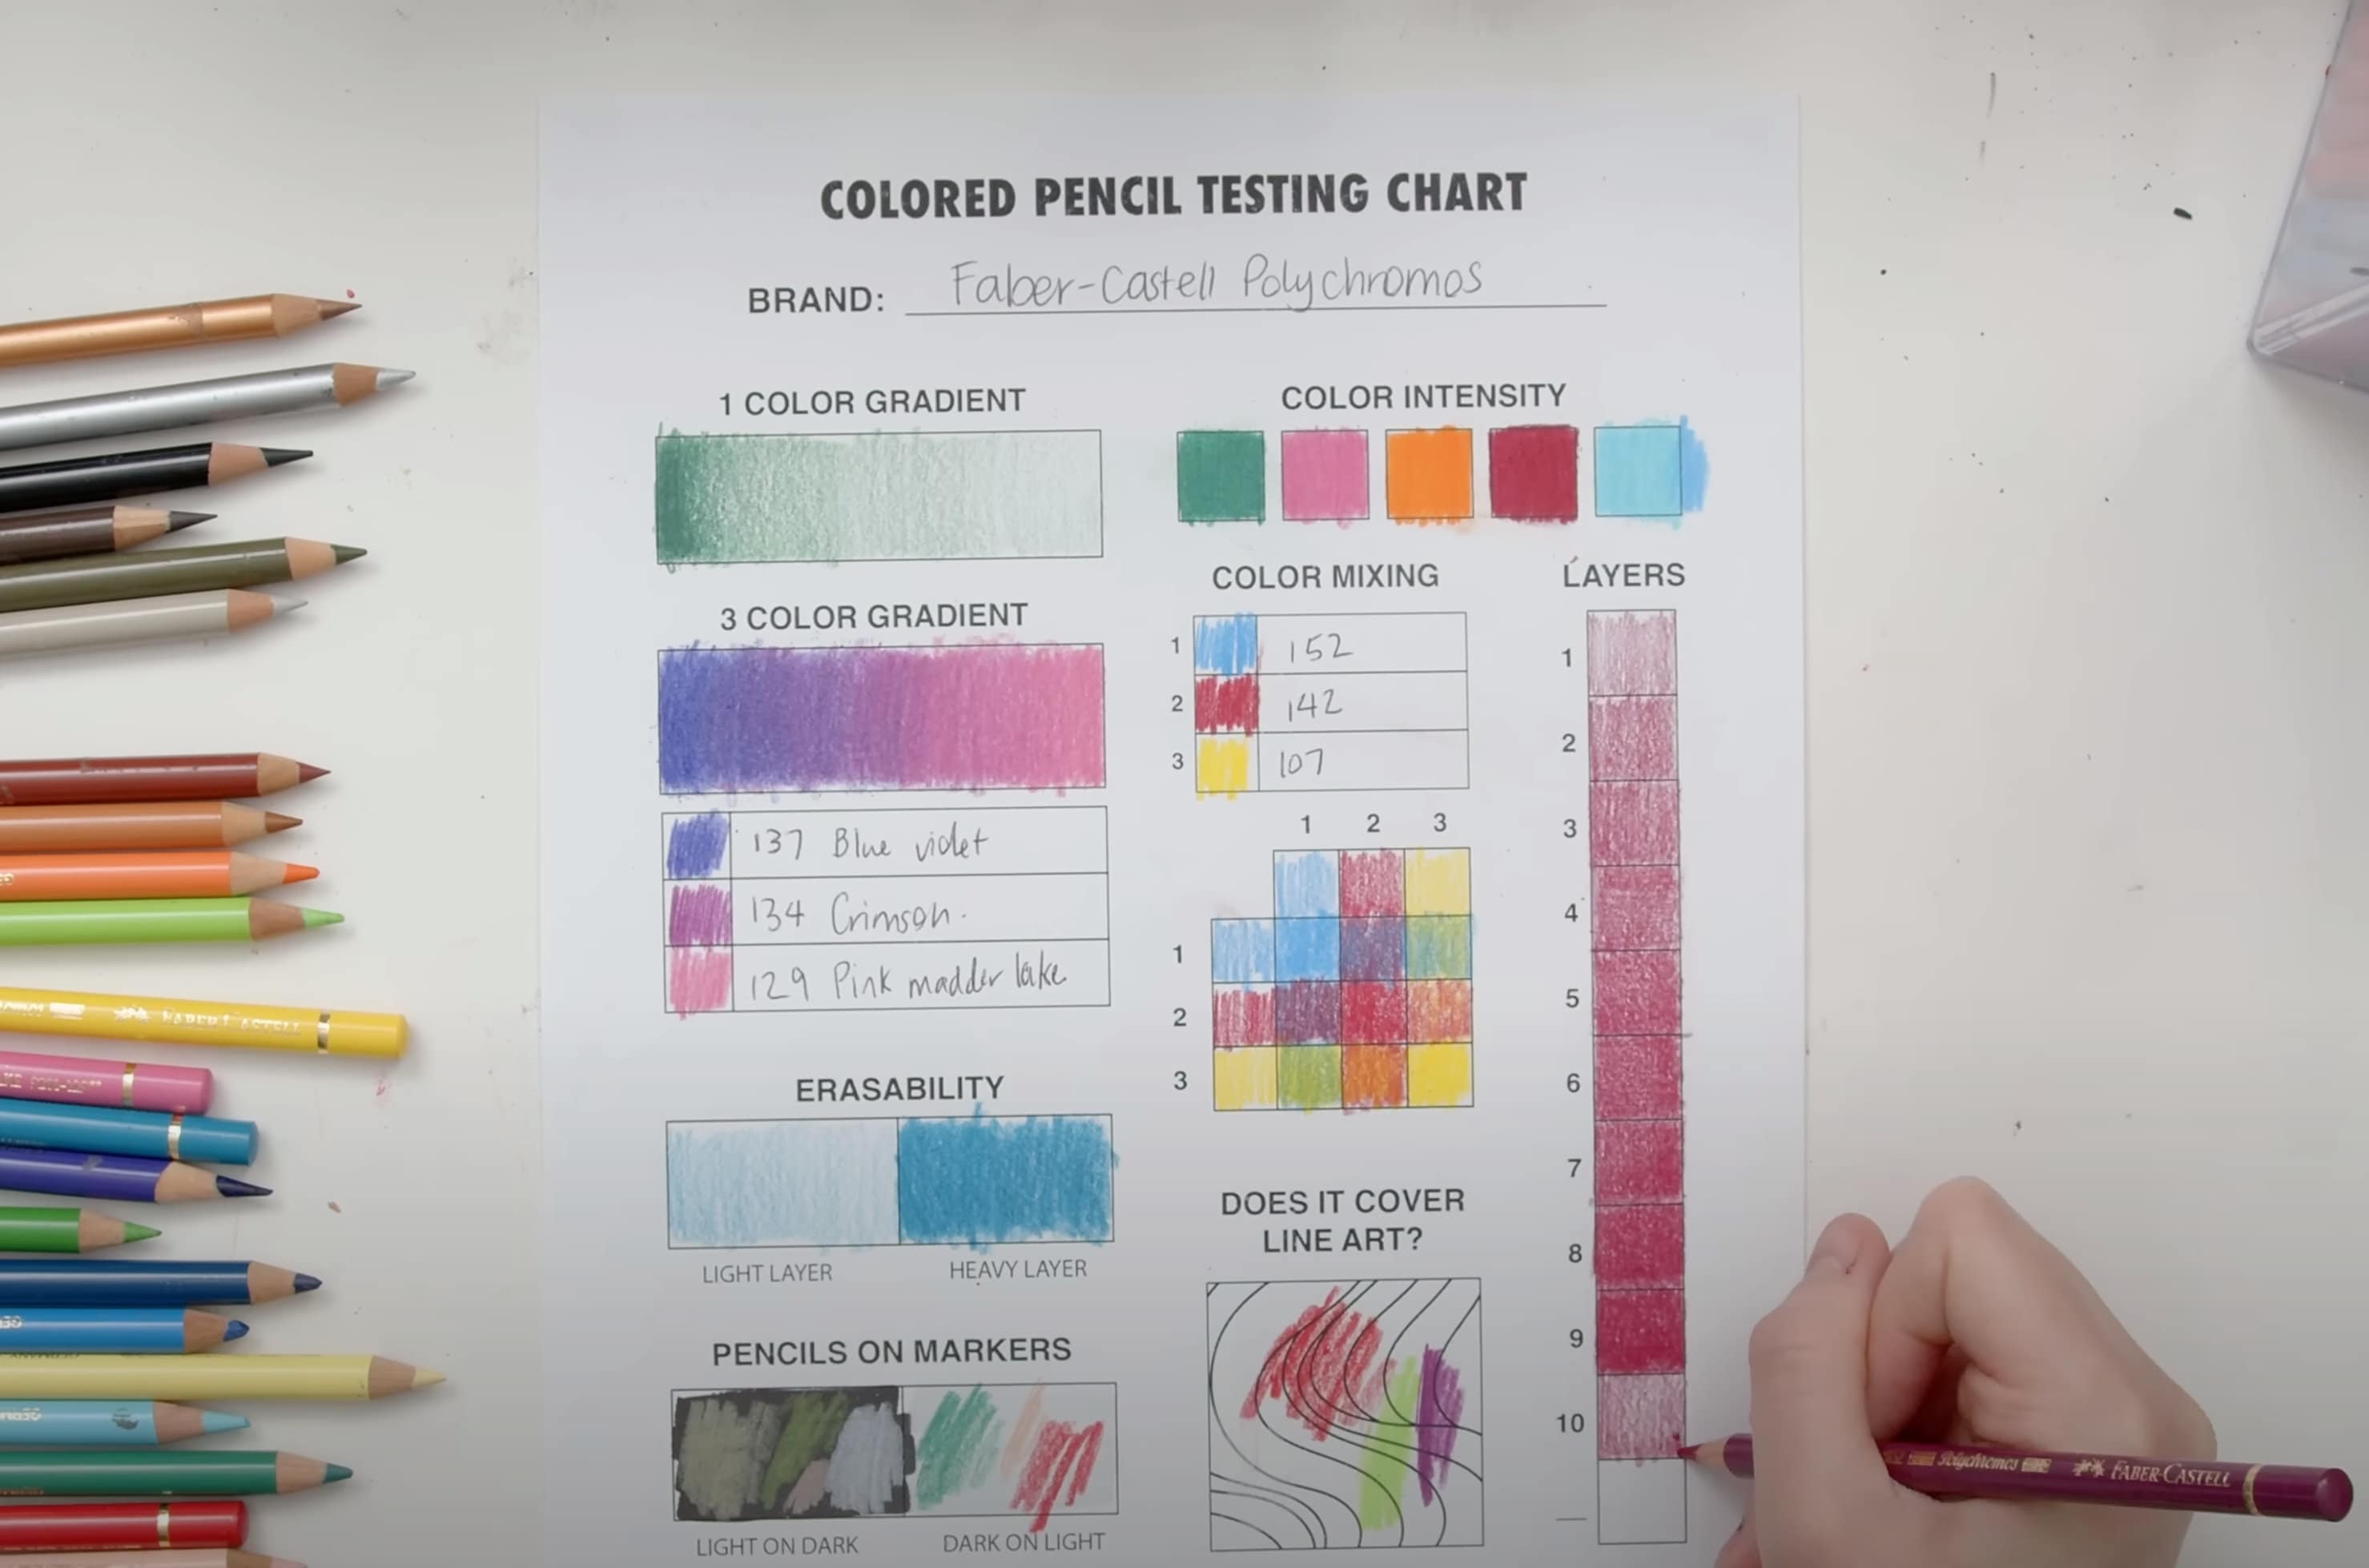 COLORED PENCIL TESTING CHART
BRAND: Faber-Castell Polychromos
1 COLOR GRADIENT
3 COLOR GRADIENT
137 Blue violet
134 Crimson.
129 Pink madder lake
ERASABILITY
LIGHT LAYER
HEAVY LAYER
PENCILS ON MARKERS
LIGHT ON DARK
DARK ON LIGHT
COLOR INTENSITY
COLOR MIXING
1 152
2 142
3 107
1 2 3
1
2
3
DOES IT COVER
LINE ART?
LAYERS
1
2
3
4
5
6
7
8
9
10
FABER-CASTELL
Polychromos FABER-CASTELL